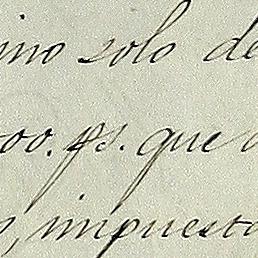 ino solo de
00. ps. que
s, impuesto